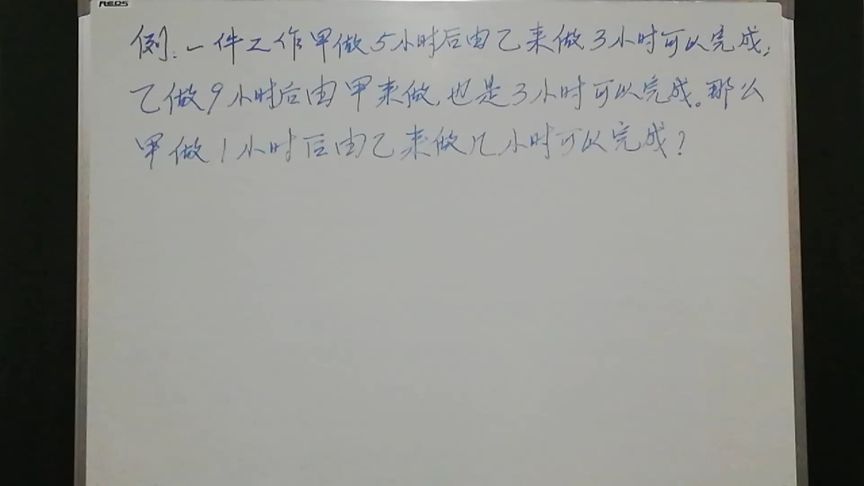 REDS
例:一件工作甲做5小时后由乙来做3小时可以完成;
乙做9小时后由甲来做,也是3小时可以完成。那么
甲做1小时后由乙来做几小时可以完成?